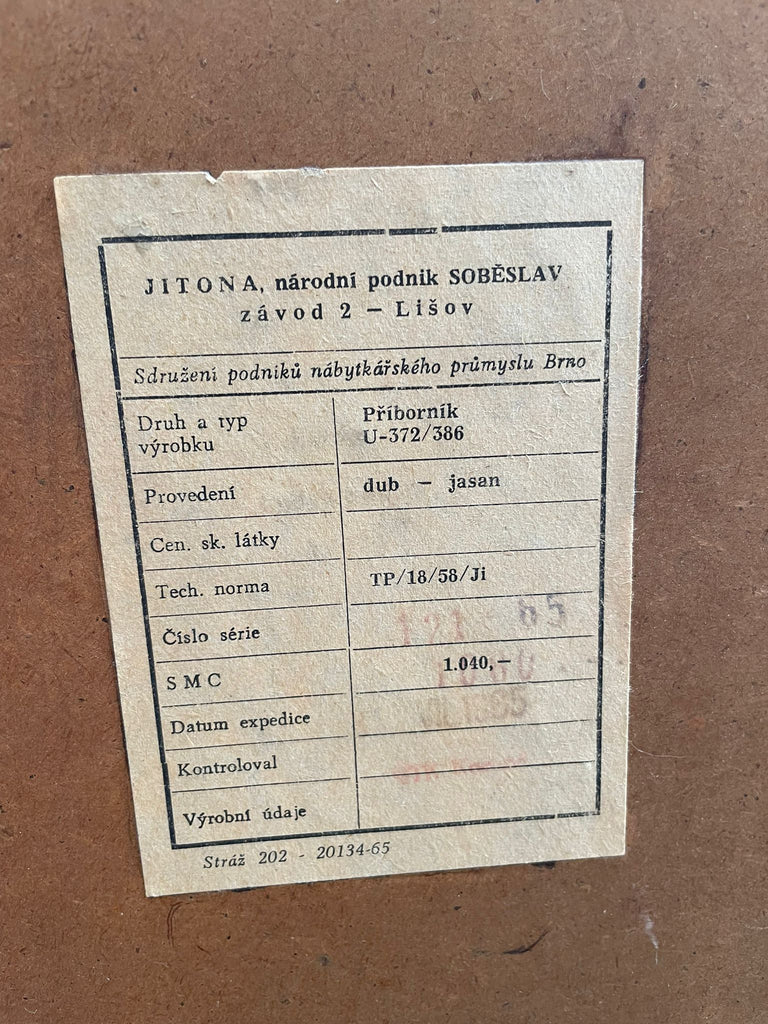 JITONA, národní podnik SOBĚSLAV
závod 2 – Lišov
Sdružení podniků nábytkářského průmyslu Brno
Druh a typ výrobku
Příborník
U-372/386
Provedení
dub – jasan
Cen. sk. látky
Tech. norma
TP/18/58/Ji
Číslo série
121 65
SMC
1.040,–
Datum expedice
Kontroloval
Výrobní údaje
Stráž 202 - 20134-65